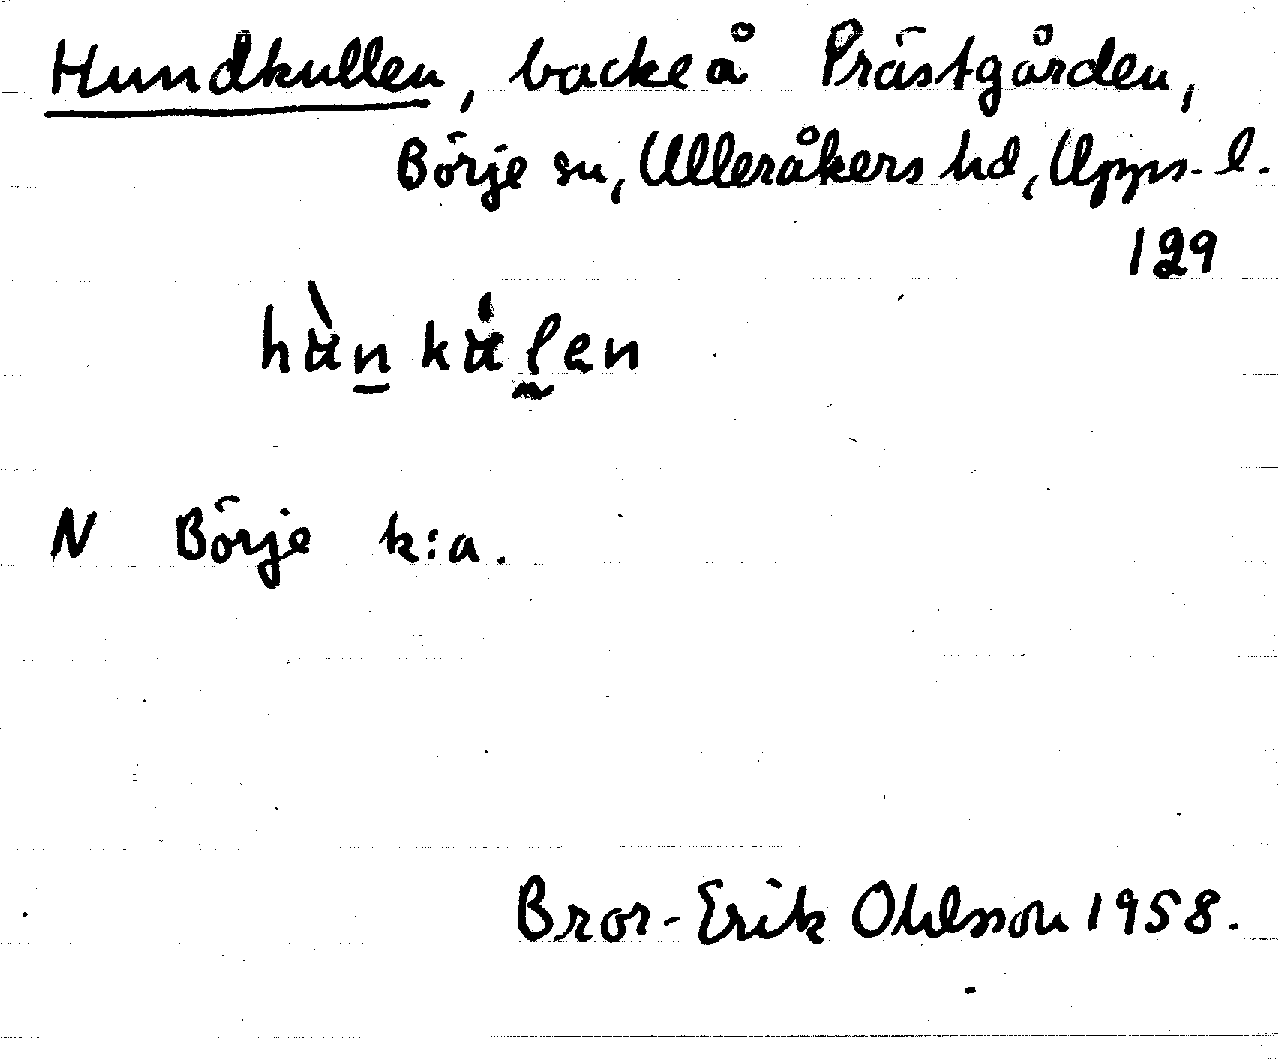 Hundkullen, backe å Prästgården,
Börje sn, Ulleråkers hd, Upps. l.
129
hùn kúlen
N Börje k:a.
Bror-Erik Ohlsson 1958.